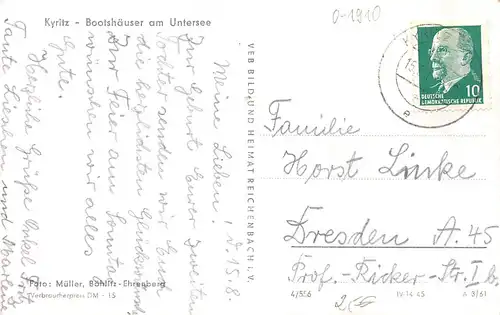 Kyritz - Bootshäuser am Untersee
0-1910
DEUTSCHE
DEMOKRATISCHE REPUBLIK
10
Meine Lieben! d. 15.8.
Zur Geburt Eurer zweiten
Tochter senden wir Euch
die herzlichsten Glückwünsche.
Zur Feier am Sonntag
wünschen wir alles
Gute.
Herzliche Grüße Onkel
Tante Lieschen und
VEB BILD UND HEIMAT REICHENBACH I. V.
Familie
Horst Linke
Dresden A. 45
Prof.-Ricker-Str. 1b
Foto: Müller, Böhlitz-Ehrenberg
Verbraucherpreis DM -.15
4/556
IV-14-45
A 3/61